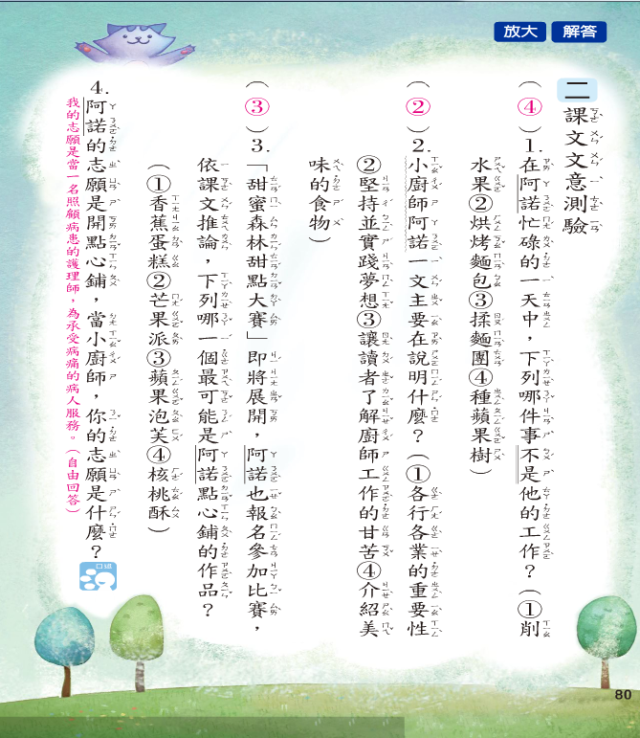 放大 解答
二 課文文意測驗
(④)1.在阿諾忙碌的一天中，下列哪件事不是他的工作？(①削
水果②烘烤麵包③揉麵團④種蘋果樹)
(②)2.小廚師阿諾一文主要在說明什麼？(①各行各業的重要性
②堅持並實踐夢想③讓讀者了解廚師工作的甘苦④介紹美
味的食物)
(③)3.「甜蜜森林甜點大賽」即將展開，阿諾也報名參加比賽，
依課文推論，下列哪一個最可能是阿諾點心鋪的作品？
(①香蕉蛋糕②芒果派③蘋果泡芙④核桃酥)
4.阿諾的志願是開點心鋪，當小廚師，你的志願是什麼？
口語
我的志願是當一名照顧病患的護理師，為承受病痛的病人服務。(自由回答)
80